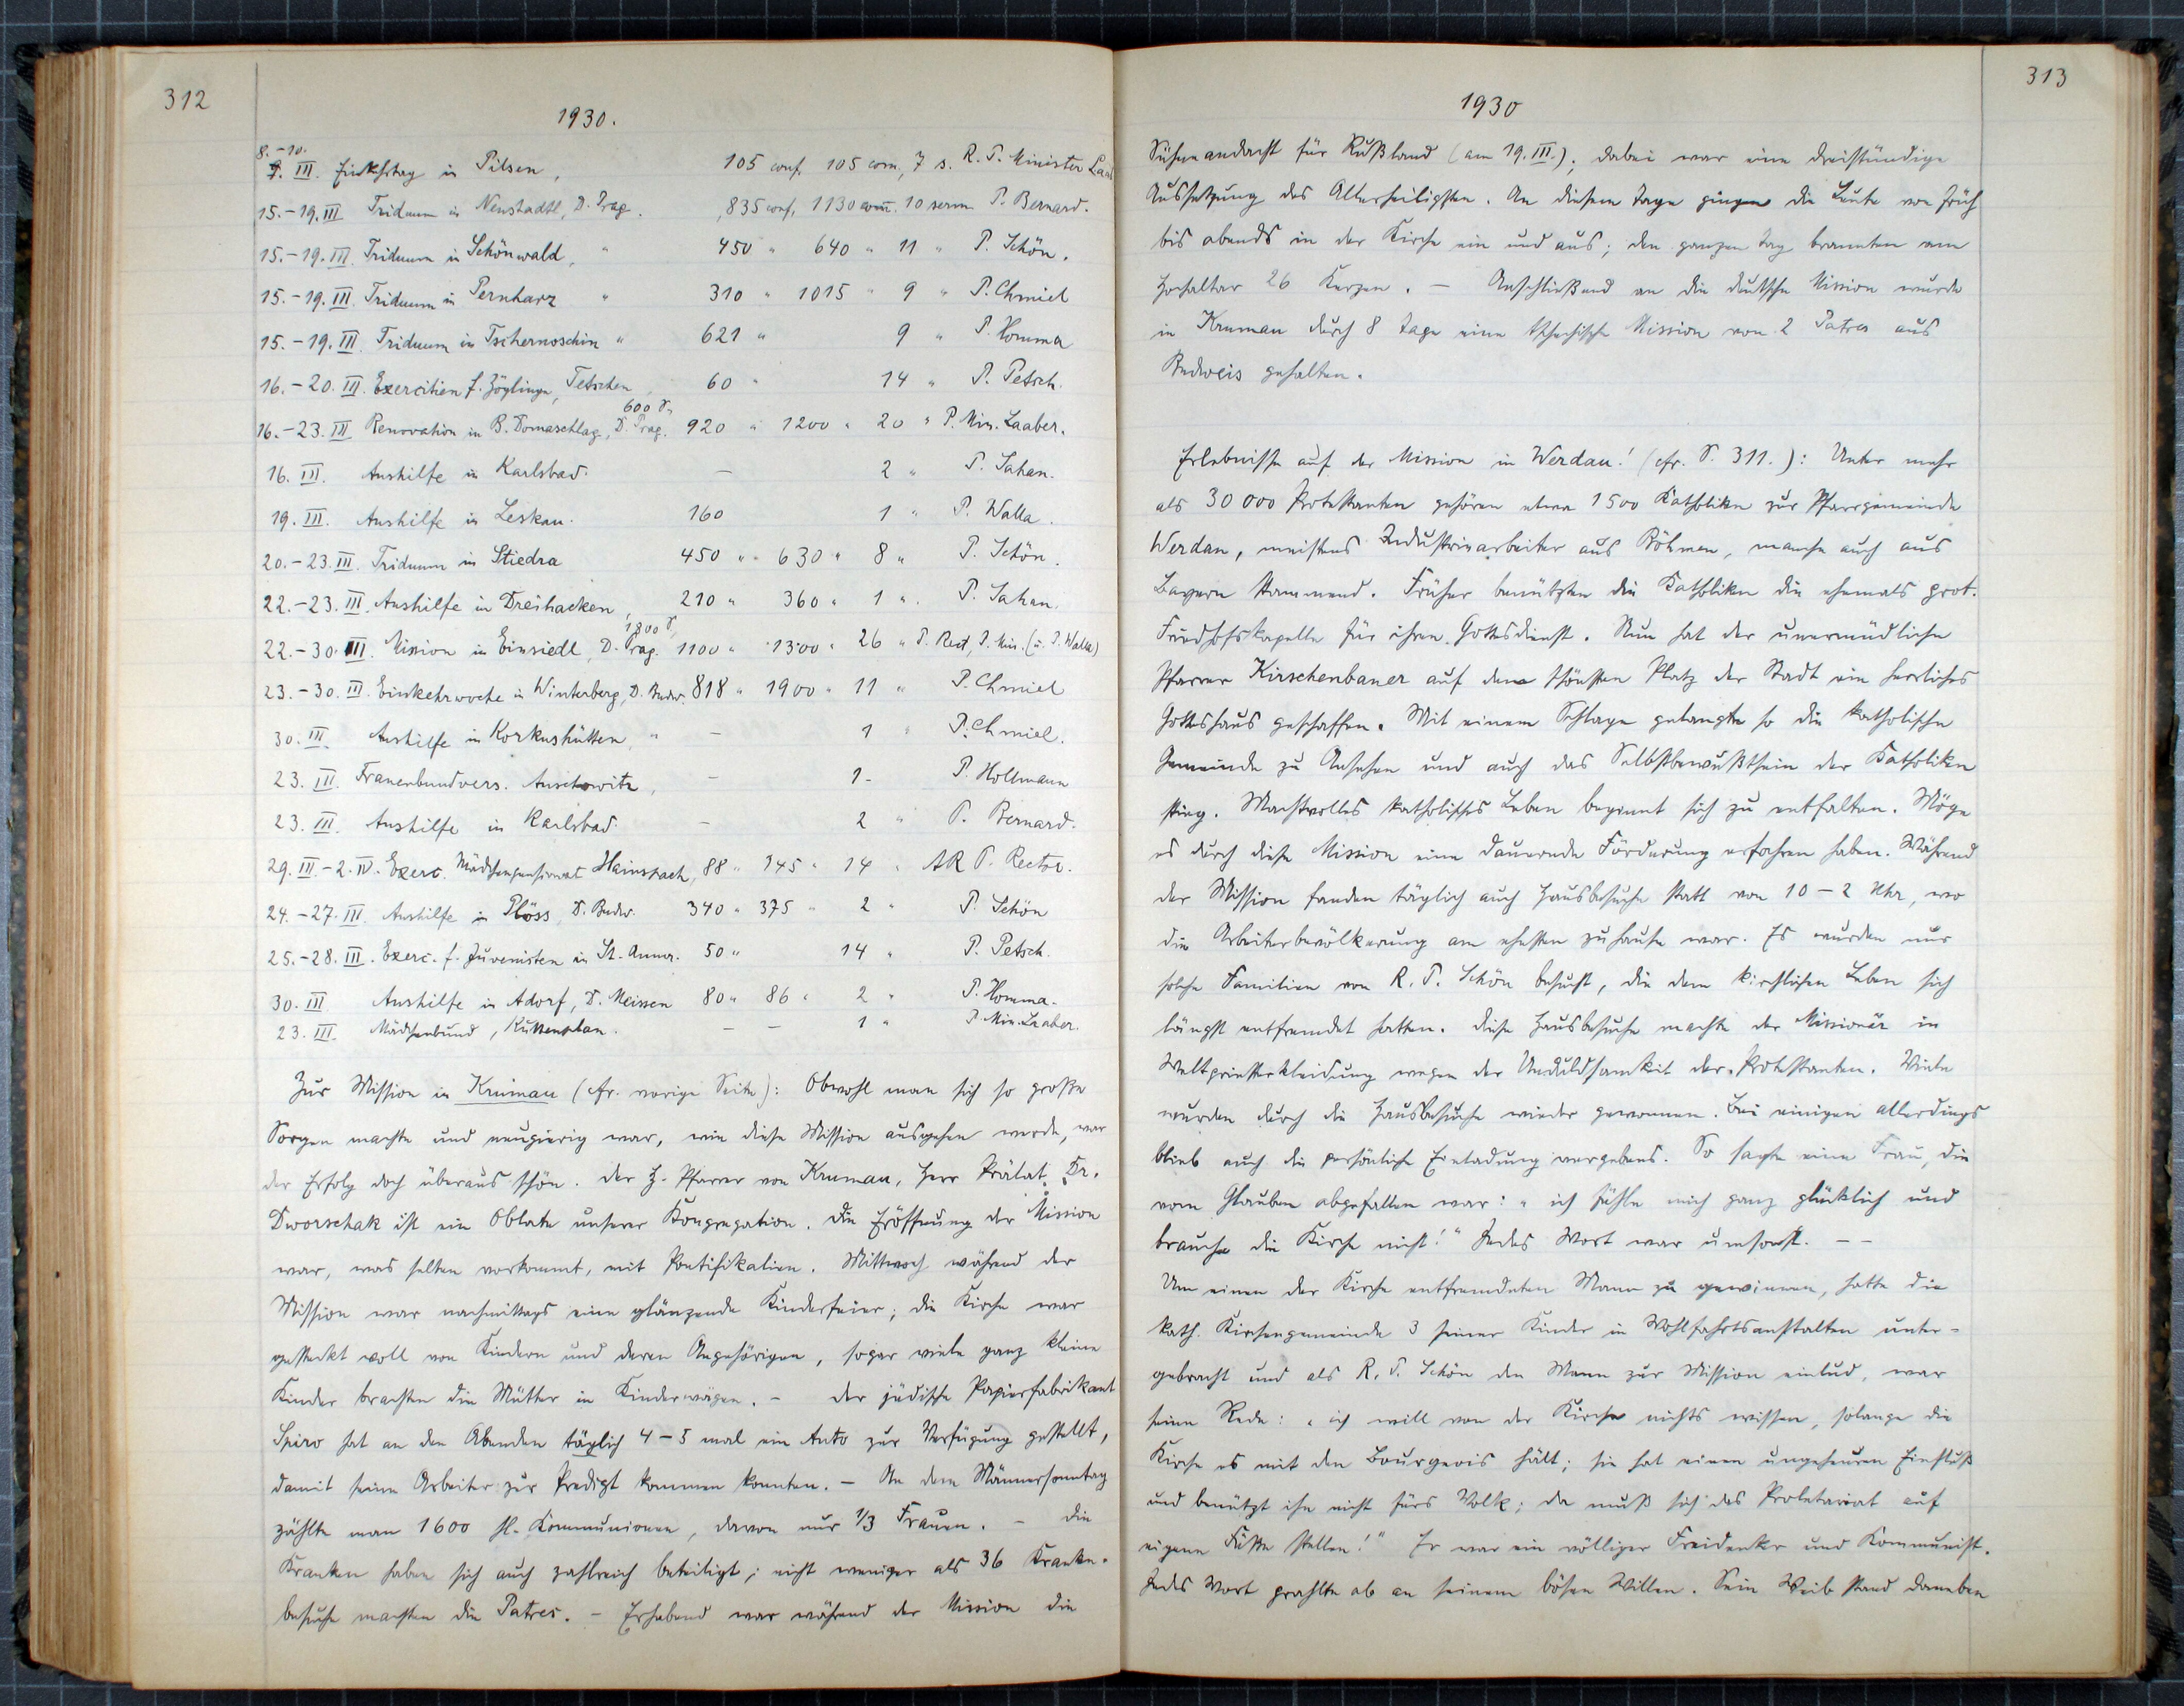 312
1930.
8.-10.
9. III. Einkehrtag in Pilsen, 105 conf. 105 com., 7 s. R. P. Minister Laab
15.-19. III Triduum in Neustadtl, D. Prag. 835 conf, 1130 com. 10 serm P. Bernard.
15.-19. III. Triduum in Schönwald, " 450 " 640 " 11 " P. Schön.
15.-19. III. Triduum in Pernharz " 310 " 1015 " 9 " P. Chmiel
15.-19. III. Triduum in Tschernoschin " 621 " 9 " P. Homma
16.-20. III. Exercitien f. Zöglinge, Tetschen, 60 " 14 " P. Petsch.
600 S.
16.-23. III Renovation in B. Domaschlag, D. Prag. 920 " 1200 " 20 " P. Min. Laaber.
16. III. Aushilfe in Karlsbad. – 2 " P. Sahan.
19. III. Aushilfe in Leskau. 160 1 " P. Walla.
20.-23. III. Triduum in Stiedra 450 " 630 " 8 " P. Schön.
22.-23. III. Aushilfe in Dreihacken, 210 " 360 " 1 " P. Sahan.
1800 S.
22.-30. III. Mission in Einsiedl, D. Prag. 1100 " 1300 " 26 " P. Rect, P. Min. (u. P. Walla)
23.-30. III. Einkehrwoche in Winterberg, D. Budw. 818 " 1900 " 11 " P. Chmiel
30. III. Aushilfe in Korkushütten, " – 1 " P. Chmiel.
23. III. Frauenbundvers. Auschowitz, – 1 - P. Hollmann
23. III. Aushilfe in Karlsbad. – 2 " P. Bernard.
29. III.-2. IV. Exerc. Mädchenpensionat Hainspach, 88 " 145 " 14 " AR P. Rector.
24.-27. III. Aushilfe in Plöss, D. Budw. 340 " 375 " 2 " P. Schön
25.-28. III. Exerc. f. Juvenisten in St. Anna. 50 " 14 " P. Petsch.
30. III. Aushilfe in Adorf, D. Meissen 80 " 86 " 2 " P. Homma.
23. III. Mädchenbund, Kuttenplan. – – 1 " P. Min. Laaber.
Zur Mission in Krumau (cfr. vorige Seite): Obwohl man sich so große
Sorgen machte und neugierig war, wie diese Mission ausgehen werde, war
der Erfolg doch überaus schön. Der H. Pfarrer von Krumau, Herr Prälat Dr.
Dworschak ist ein Oblate unserer Kongregation. Die Eröffnung der Mission
war, was selten vorkommt, mit Pontifikalien. Mittwoch während der
Mission war nachmittags eine glänzende Kinderfeier; die Kirche war
gesteckt voll von Kindern und deren Angehörigen, sogar viele ganz kleine
Kinder brachten die Mütter in Kinderwägen. – Der jüdische Papierfabrikant
Spiro hat an den Abenden täglich 4-5 mal ein Auto zur Verfügung gestellt,
damit seine Arbeiter zur Predigt kommen konnten. – An dem Männersonntag
zählte man 1600 hl. Kommunionen, davon nur 1/3 Frauen. – Die
Kranken haben sich auch zahlreich beteiligt; nicht weniger als 36 Kranken-
besuche machten die Patres. – Erhebend war während der Mission die
313
1930
Sühneandacht für Rußland (am 19. III.); dabei war eine dreistündige
Aussetzung des Allerheiligsten. An diesem Tage gingen die Leute von früh
bis abends in der Kirche ein und aus; den ganzen Tag brannten am
Hochaltar 26 Kerzen. – Anschließend an die deutsche Mission wurde
in Krumau durch 8 Tage eine tschechische Mission von 2 Patres aus
Budweis gehalten.
Erlebnisse auf der Mission in Werdau! (cfr. S. 311.): Unter mehr
als 30 000 Protestanten gehören etwa 1500 Katholiken zur Pfarrgemeinde
Werdau, meistens Industriearbeiter aus Böhmen, manche auch aus
Bayern stammend. Früher benützten die Katholiken die ehemals prot.
Friedhofskapelle für ihren Gottesdienst. Nun hat der unermüdliche
Pfarrer Kirschenbauer auf dem schönsten Platz der Stadt ein herrliches
Gotteshaus geschaffen. Mit einem Schlage gelangte so die katholische
Gemeinde zu Ansehen und auch das Selbstbewußtsein der Katholiken
stieg. Machtvolles katholisches Leben beginnt sich zu entfalten. Möge
es durch diese Mission eine dauernde Förderung erfahren haben. Während
der Mission fanden täglich auch Hausbesuche statt von 10-2 Uhr, wo
die Arbeiterbevölkerung am ehesten zuhause war. Es wurden nur
solche Familien von R. P. Schön besucht, die dem kirchlichen Leben sich
längst entfremdet hatten. Diese Hausbesuche machte der Missionär in
Weltpriesterkleidung wegen der Unduldsamkeit der Protestanten. Viele
wurden durch die Hausbesuche wieder gewonnen. Bei einigen allerdings
blieb auch die persönliche Einladung vergebens. So sagte eine Frau, die
vom Glauben abgefallen war: „ich fühle mich ganz glücklich und
brauche die Kirche nicht!" Jedes Wort war umsonst. – –
Um einen der Kirche entfremdeten Mann zu gewinnen, hatte die
kath. Kirchengemeinde 3 seiner Kinder in Wohlfahrtsanstalten unter-
gebracht und als R. P. Schön den Mann zur Mission einlud, war
seine Rede: „ich will von der Kirche nichts wissen, solange die
Kirche es mit den Bourgeois hält; sie hat einen ungeheuren Einfluß
und benützt ihn nicht fürs Volk; da muß sich das Proletariat auf
eigene Füße stellen!" Er war ein völliger Freidenker und Kommunist.
Jedes Wort prahlte ab an seinem bösen Willen. Sein Weib stand daneben